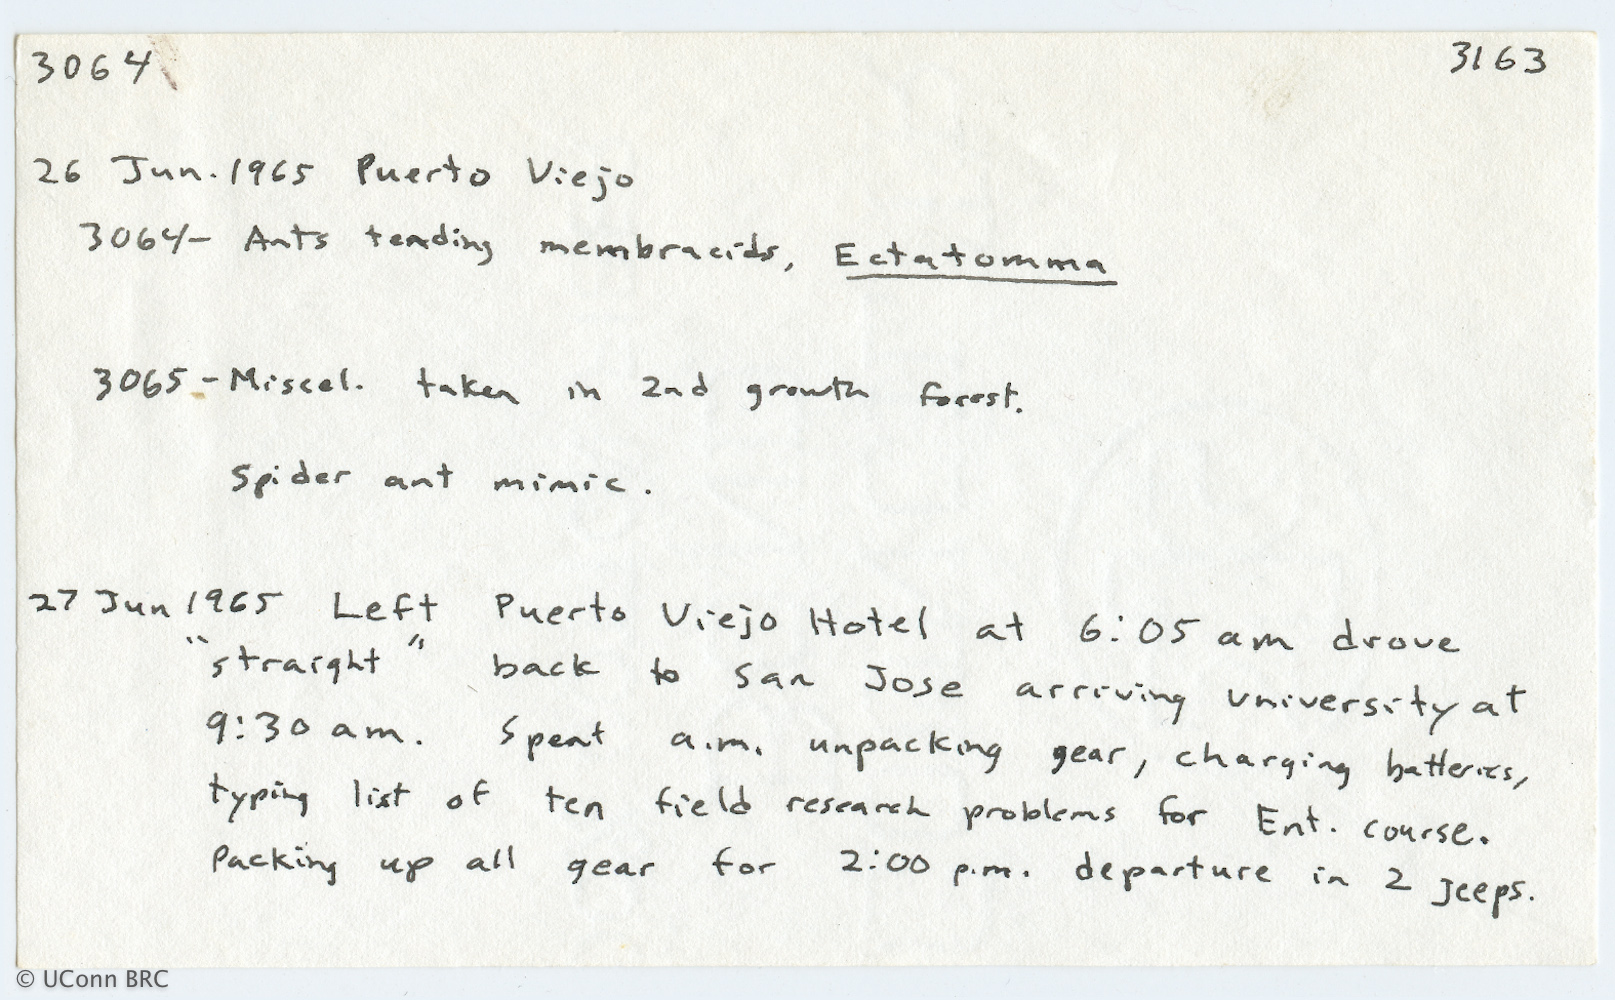 3064 3163
26 Jun. 1965 Puerto Viejo
3064- Ants tending membracids, Ectatomma
3065 - Miscel. taken in 2nd growth forest.
Spider ant mimic.
27 Jun 1965 Left Puerto Viejo Hotel at 6:05 am drove
"straight" back to San Jose arriving university at
9:30 am. Spent a.m. unpacking gear, charging batteries,
typing list of ten field research problems for Ent. course.
Packing up all gear for 2:00 p.m. departure in 2 jeeps.
© UConn BRC